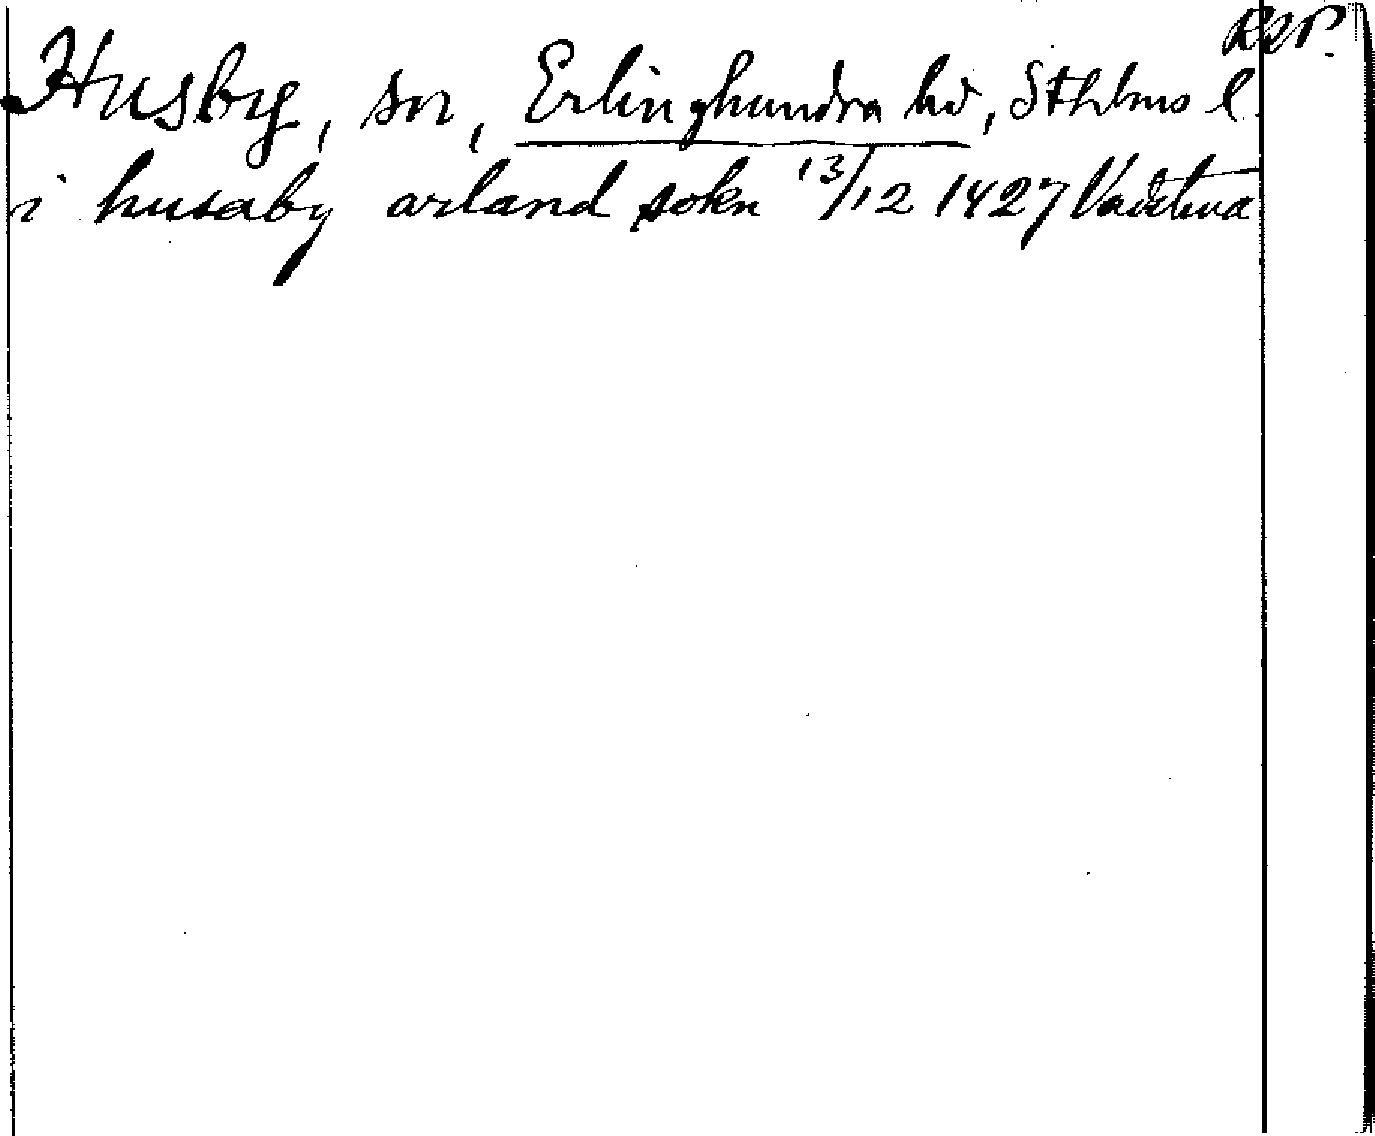 RAP.
Husby, sn, Erlinghundra hd, Sthlms l.
i husaby arland sokn 13/12 1427 Vadstena